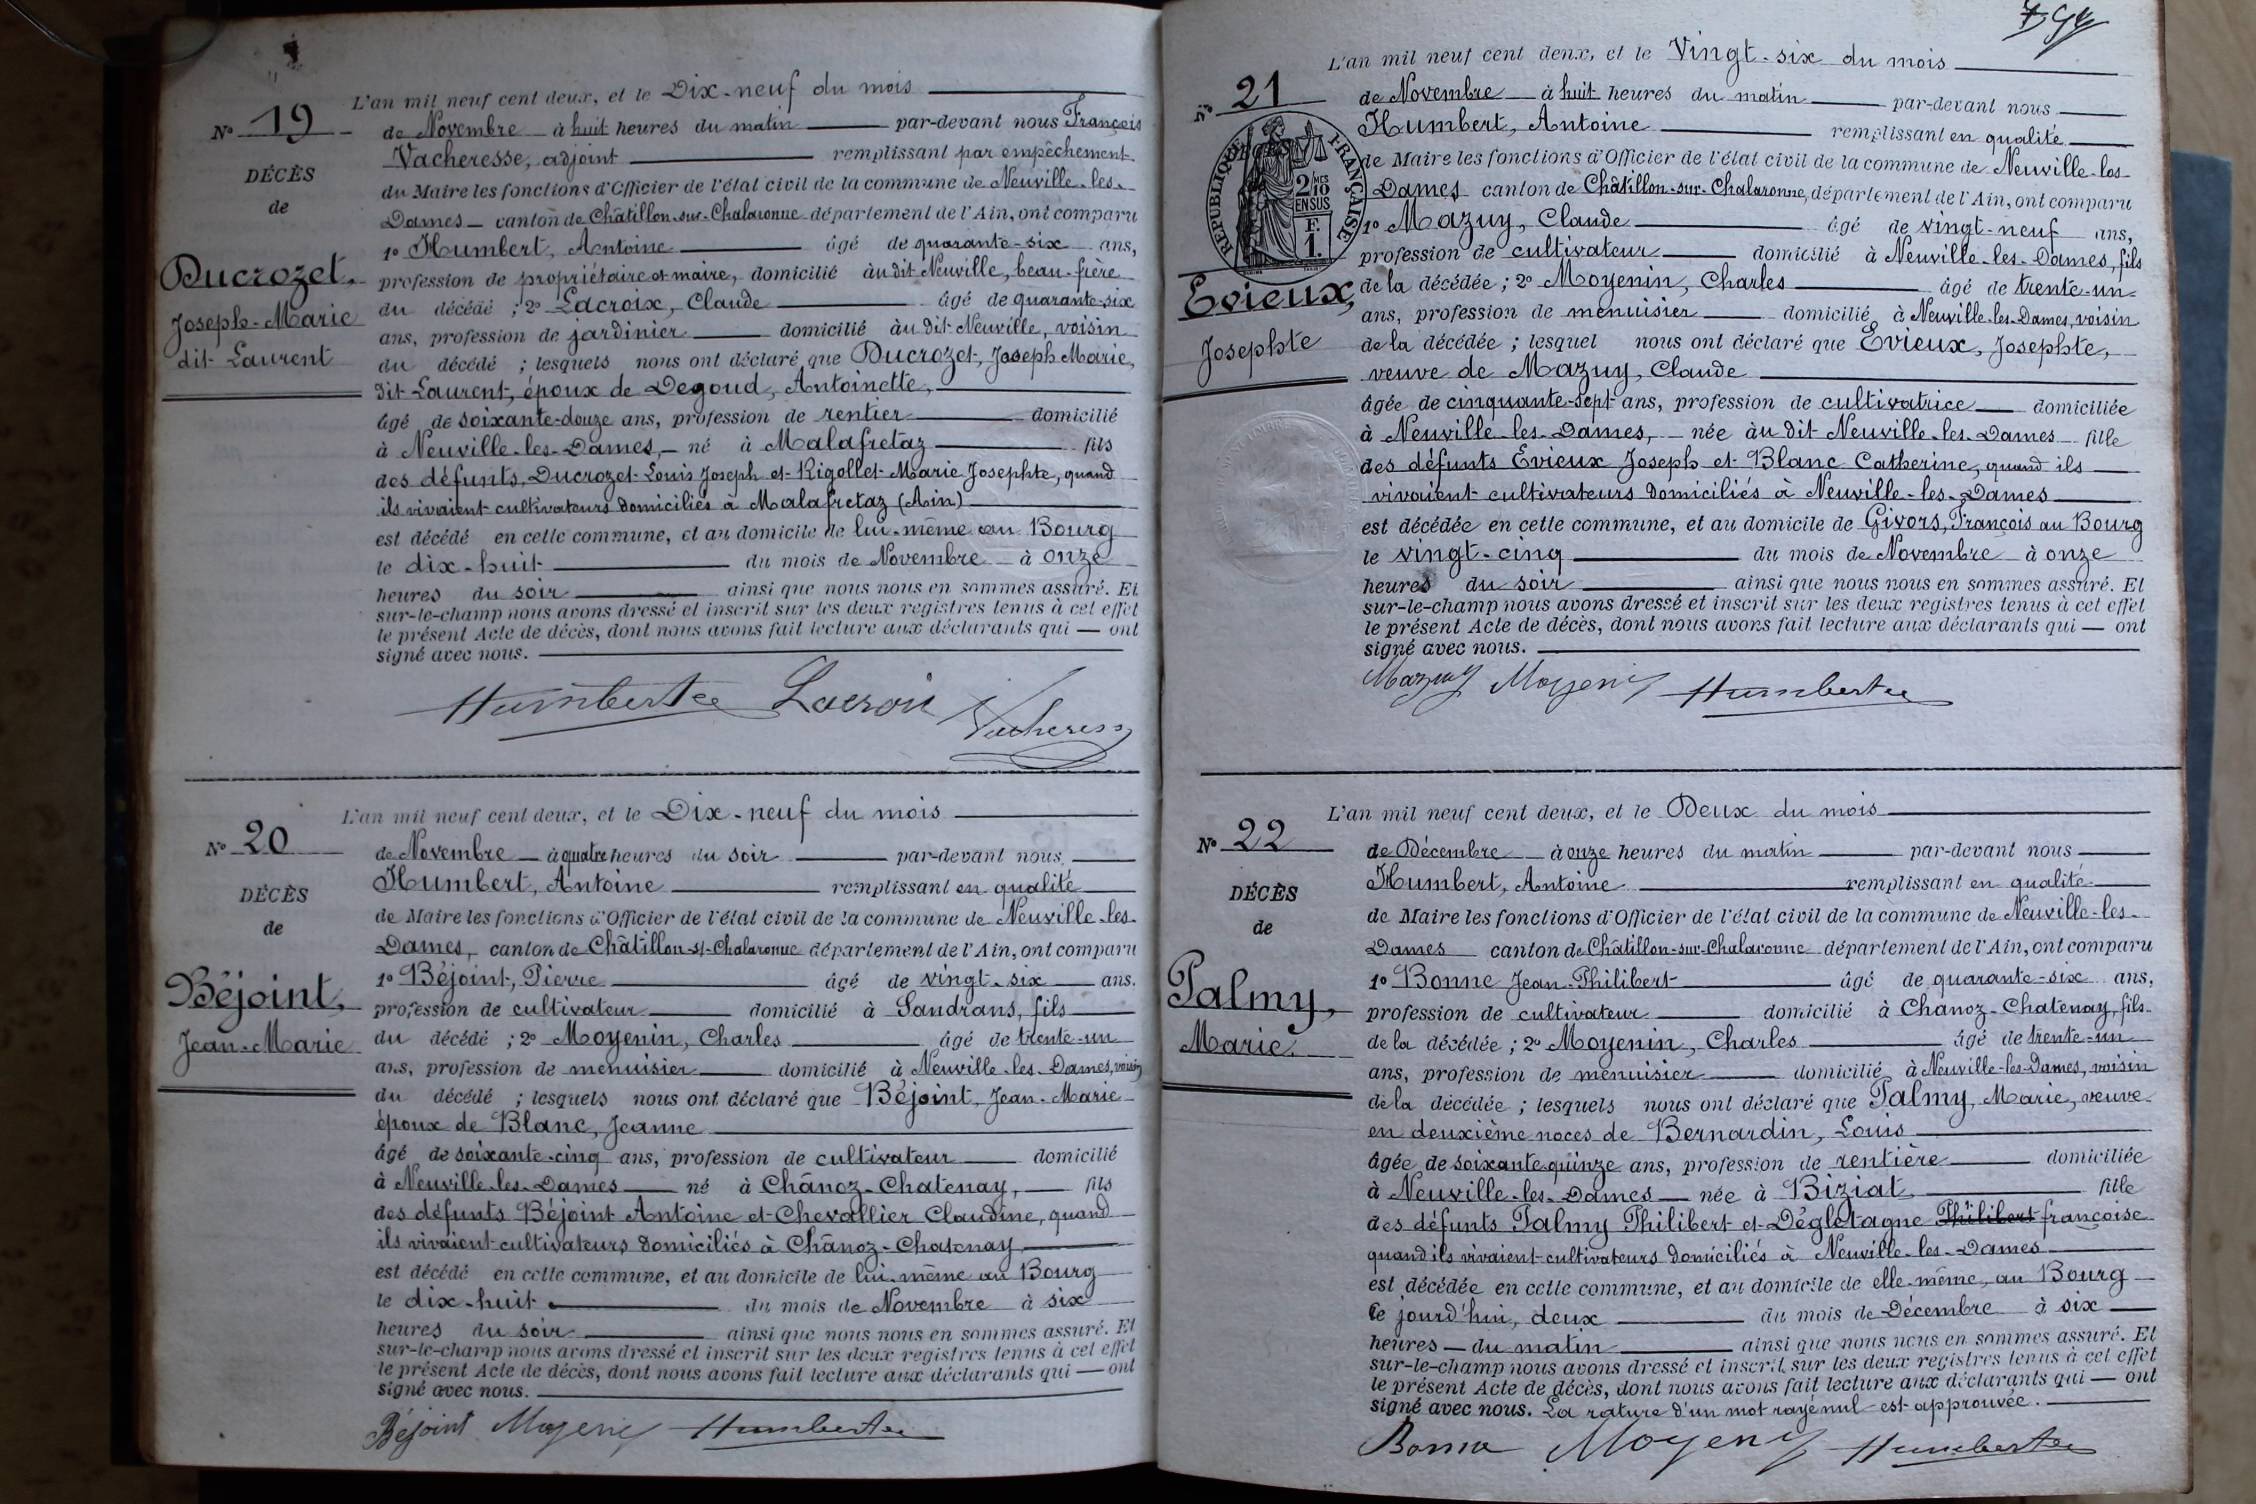 L'an mil neuf cent deux, et le Dix-neuf du mois
N° 19
de Novembre à huit heures du matin par-devant nous François
Vacheresse, adjoint remplissant par empêchement
DÉCÈS
du Maire les fonctions d'Officier de l'état civil de la commune de Neuville-les-
de
Dames canton de Châtillon-sur-Chalaronne département de l'Ain, ont comparu
1° Humbert, Antoine âgé de quarante-six ans,
Ducrozet,
profession de propriétaire et maire, domicilié au dit Neuville, beau-frère
du décédé ; 2° Lacroix, Claude âgé de quarante-six
Joseph-Marie
ans, profession de jardinier domicilié au dit Neuville, voisin
dit Laurent
du décédé ; lesquels nous ont déclaré que Ducrozet, Joseph Marie,
dit Laurent, époux de Degoud, Antoinette,
âgé de soixante-douze ans, profession de rentier domicilié
à Neuville-les-Dames, né à Malafretaz fils
des défunts Ducrozet Louis Joseph et Rigollet Marie Josephte, quand
ils vivaient cultivateurs domiciliés à Malafretaz (Ain)
est décédé en cette commune, et au domicile de lui-même au Bourg
le dix-huit du mois de Novembre à onze
heures du soir ainsi que nous nous en sommes assuré. Et
sur-le-champ nous avons dressé et inscrit sur les deux registres tenus à cet effet
le présent Acte de décès, dont nous avons fait lecture aux déclarants qui — ont
signé avec nous.
Humbert Lacroix Vacheresse
L'an mil neuf cent deux, et le Dix-neuf du mois
N° 20
de Novembre à quatre heures du soir par-devant nous
Humbert, Antoine remplissant en qualité
DÉCÈS
de Maire les fonctions d'Officier de l'état civil de la commune de Neuville-les-
de
Dames, canton de Châtillon-s/-Chalaronne département de l'Ain, ont comparu
1° Béjoint, Pierre âgé de vingt-six ans.
Béjoint,
profession de cultivateur domicilié à Sandrans, fils
Jean-Marie
du décédé ; 2° Moyenin, Charles âgé de trente-un
ans, profession de menuisier domicilié à Neuville-les-Dames, voisin
du décédé ; lesquels nous ont déclaré que Béjoint, Jean-Marie
époux de Blanc, Jeanne
âgé de soixante-cinq ans, profession de cultivateur domicilié
à Neuville-les-Dames né à Chânoz-Chatenay, fils
des défunts Béjoint Antoine et Chevallier Claudine, quand
ils vivaient cultivateurs domiciliés à Chânoz-Chatenay
est décédé en cette commune, et au domicile de lui-même au Bourg
le dix-huit du mois de Novembre à six
heures du soir ainsi que nous nous en sommes assuré. Et
sur-le-champ nous avons dressé et inscrit sur les deux registres tenus à cet effet
le présent Acte de décès, dont nous avons fait lecture aux déclarants qui — ont
signé avec nous.
Béjoint Moyenin Humbert
L'an mil neuf cent deux, et le Vingt-six du mois
N° 21
de Novembre à huit heures du matin par-devant nous
Humbert, Antoine remplissant en qualité
RÉPUBLIQUE FRANÇAISE
2/10 MES
EN SUS
F.
1.
de Maire les fonctions d'Officier de l'état civil de la commune de Neuville-les-
Dames canton de Châtillon-sur-Chalaronne, département de l'Ain, ont comparu
1° Mazuy, Claude âgé de vingt-neuf ans,
profession de cultivateur domicilié à Neuville-les-Dames, fils
Evieux,
de la décédée ; 2° Moyenin, Charles âgé de trente-un
ans, profession de menuisier domicilié à Neuville-les-Dames, voisin
Josephte
de la décédée ; lesquel nous ont déclaré que Evieux, Josephte,
veuve de Mazuy, Claude
âgée de cinquante-sept ans, profession de cultivatrice domiciliée
à Neuville-les-Dames, née au dit Neuville-les-Dames fille
des défunts Evieux Joseph et Blanc Catherine, quand ils
vivaient cultivateurs domiciliés à Neuville-les-Dames
est décédée en cette commune, et au domicile de Givors, François au Bourg
le vingt-cinq du mois de Novembre à onze
heures du soir ainsi que nous nous en sommes assuré. Et
sur-le-champ nous avons dressé et inscrit sur les deux registres tenus à cet effet
le présent Acte de décès, dont nous avons fait lecture aux déclarants qui — ont
signé avec nous.
Mazuy Moyenin Humbert
L'an mil neuf cent deux, et le Deux du mois
N° 22
de Décembre à onze heures du matin par-devant nous
Humbert, Antoine remplissant en qualité
DÉCÈS
de Maire les fonctions d'Officier de l'état civil de la commune de Neuville-les-
de
Dames canton de Châtillon-sur-Chalaronne département de l'Ain, ont comparu
1° Bonne Jean-Philibert âgé de quarante-six ans,
Palmy,
profession de cultivateur domicilié à Chanoz-Chatenay, fils
Marie.
de la décédée ; 2° Moyenin, Charles âgé de trente-un
ans, profession de menuisier domicilié à Neuville-les-Dames, voisin
de la décédée ; lesquels nous ont déclaré que Palmy, Marie, veuve
en deuxième noces de Bernardin, Louis
âgée de soixante-quinze ans, profession de rentière domiciliée
à Neuville-les-Dames née à Biziat, fille
des défunts Palmy Philibert et Dégletagne Philibert françoise
quand ils vivaient cultivateurs domiciliés à Neuville-les-Dames
est décédée en cette commune, et au domicile de elle-même, au Bourg
Ce jourd'hui, deux du mois de Décembre à six
heures — du matin ainsi que nous nous en sommes assuré. Et
sur-le-champ nous avons dressé et inscrit sur les deux registres tenus à cet effet
le présent Acte de décès, dont nous avons fait lecture aux déclarants qui — ont
signé avec nous. La rature d'un mot rayé nul est approuvée.
Bonne Moyenin Humbert